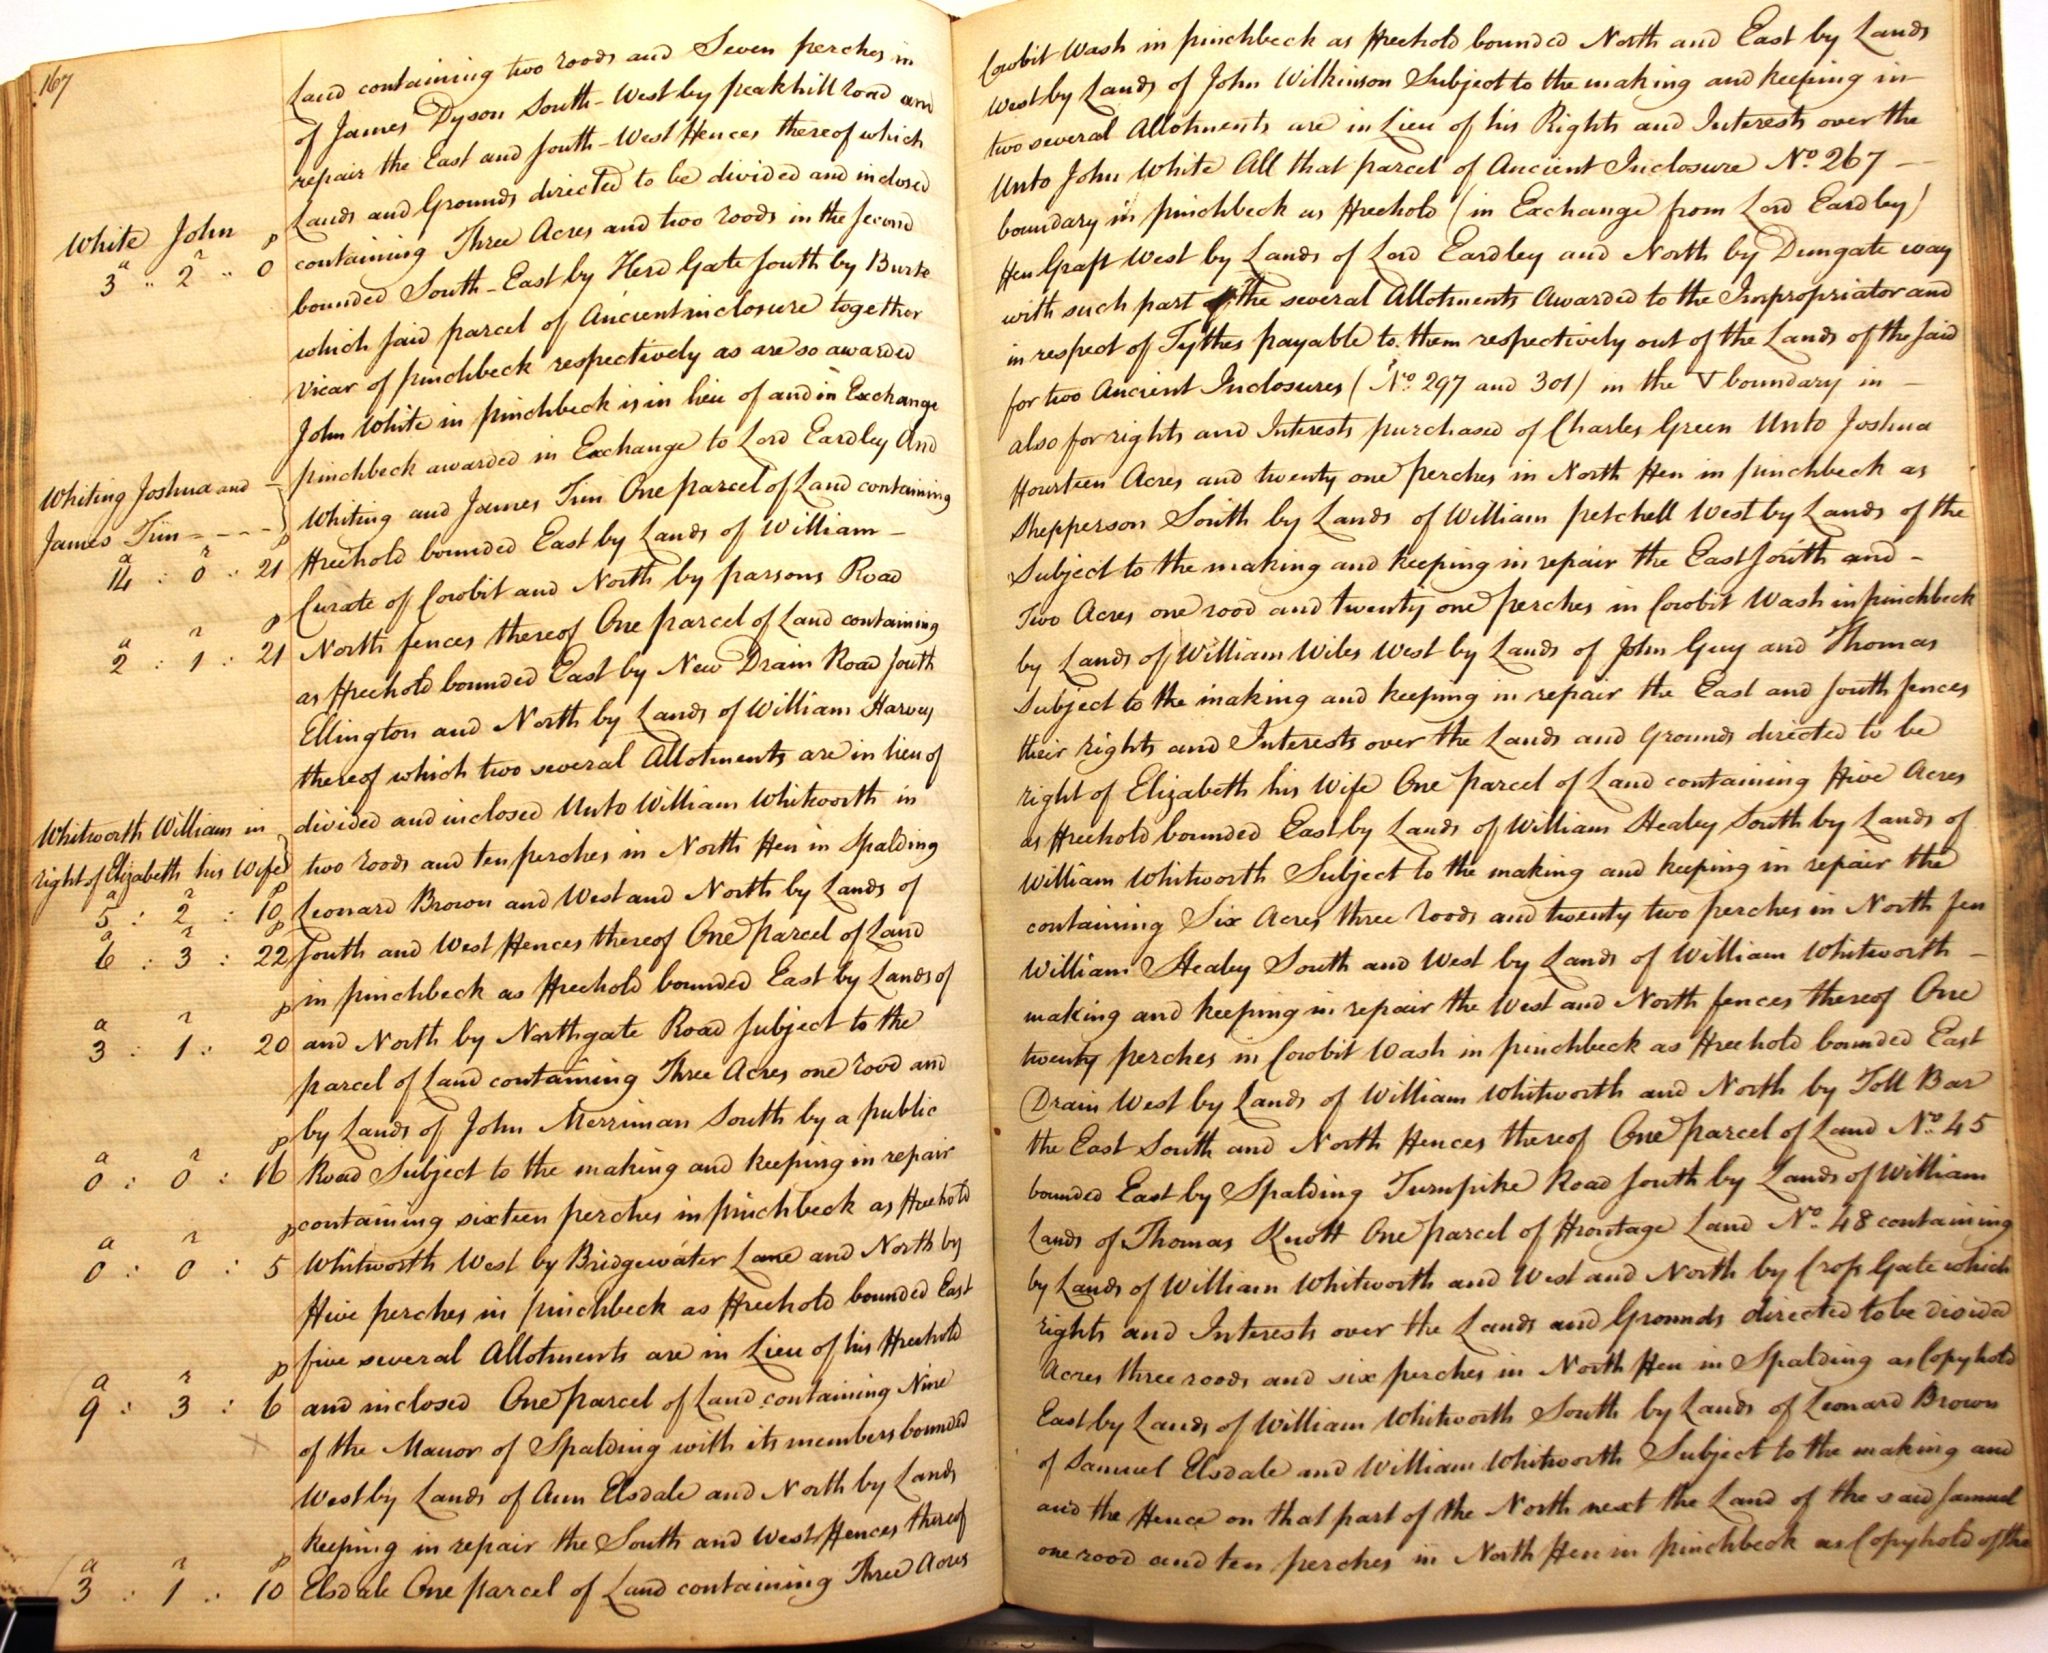 167
Land containing two roods and Seven perches in Cowbit Wash in pinchbeck as Freehold bounded North and East by Lands
of James Dyson South-West by peakhill road and West by Lands of John Wilkinson Subject to the making and keeping in
repair the East and South-West Fences thereof which two several Allotments are in Lieu of his Rights and Interests over the
Lands and Grounds directed to be divided and inclosed Unto John White All that parcel of Ancient Inclosure No 267 —
White John
a r p
3 .. 2 .. 0
containing Three Acres and two roods in the Second boundary in pinchbeck as Freehold (in Exchange from Lord Eardley)
bounded South-East by Herd Gate South by Burte Fen Graft West by Lands of Lord Eardley and North by Dungate way
which said parcel of Ancient inclosure together with such part of the several Allotments Awarded to the Impropriator and
Vicar of pinchbeck respectively as are so awarded in respect of Tythes payable to them respectively out of the Lands of the said
John White in pinchbeck is in lieu of and in Exchange for two Ancient Inclosures (No 297 and 301) in the V boundary in —
pinchbeck awarded in Exchange to Lord Eardley And also for rights and Interests purchased of Charles Green Unto Joshua
Whiting Joshua and
James Tun - - - -
a r p
14 : 0 : 21
Whiting and James Tun One parcel of Land containing Fourteen Acres and twenty one perches in North Fen in pinchbeck as
Freehold bounded East by Lands of William — Shepperson South by Lands of William petchell West by Lands of the
Curate of Cowbit and North by parsons Road Subject to the making and keeping in repair the East South and —
a r p
2 : 1 : 21
North fences thereof One parcel of Land containing Two Acres one rood and twenty one perches in Cowbit Wash in pinchbeck
as Freehold bounded East by New Drain Road South by Lands of William Wiles West by Lands of John Guy and Thomas
Ellington and North by Lands of William Harvey Subject to the making and keeping in repair the East and South fences
thereof which two several Allotments are in lieu of their rights and Interests over the Lands and Grounds directed to be
Whitworth William in
right of Elizabeth his Wife
a r p
5 : 2 : 10
divided and inclosed Unto William Whitworth in right of Elizabeth his Wife One parcel of Land containing Five Acres
two roods and ten perches in North Fen in Spalding as Freehold bounded East by Lands of William Healey South by Lands of
Leonard Brown and West and North by Lands of William Whitworth Subject to the making and keeping in repair the
a r p
6 : 3 : 22
South and West Fences thereof One parcel of Land containing Six Acres three roods and twenty two perches in North fen
in pinchbeck as Freehold bounded East by Lands of William Healey South and West by Lands of William Whitworth —
and North by Northgate Road Subject to the making and keeping in repair the West and North fences thereof One
a r p
3 : 1 : 20
parcel of Land containing Three Acres one rood and twenty perches in Cowbit Wash in pinchbeck as Freehold bounded East
by Lands of John Merriman South by a public Drain West by Lands of William Whitworth and North by Toll Bar
Road Subject to the making and keeping in repair the East South and North Fences thereof One parcel of Land No 45
a r p
0 : 0 : 16
containing sixteen perches in pinchbeck as Freehold bounded East by Spalding Turnpike Road South by Lands of William
Whitworth West by Bridgewater Lane and North by Lands of Thomas Knott One parcel of Frontage Land No 48 containing
a r p
0 : 0 : 5
Five perches in pinchbeck as Freehold bounded East by Lands of William Whitworth and West and North by Crop Gate which
five several Allotments are in Lieu of his Freehold rights and Interests over the Lands and Grounds directed to be divided
a r p
9 : 3 : 6
and inclosed One parcel of Land containing Nine Acres three roods and six perches in North Fen in Spalding as Copyhold
of the Manor of Spalding with its members bounded East by Lands of William Whitworth South by Lands of Leonard Brown
West by Lands of Ann Elsdale and North by Lands of Samuel Elsdale and William Whitworth Subject to the making and
keeping in repair the South and West Fences thereof and the Fence on that part of the North next the Land of the said Samuel
a r p
3 : 1 : 10
Elsdale One parcel of Land containing Three Acres one rood and ten perches in North Fen in pinchbeck as Copyhold of the